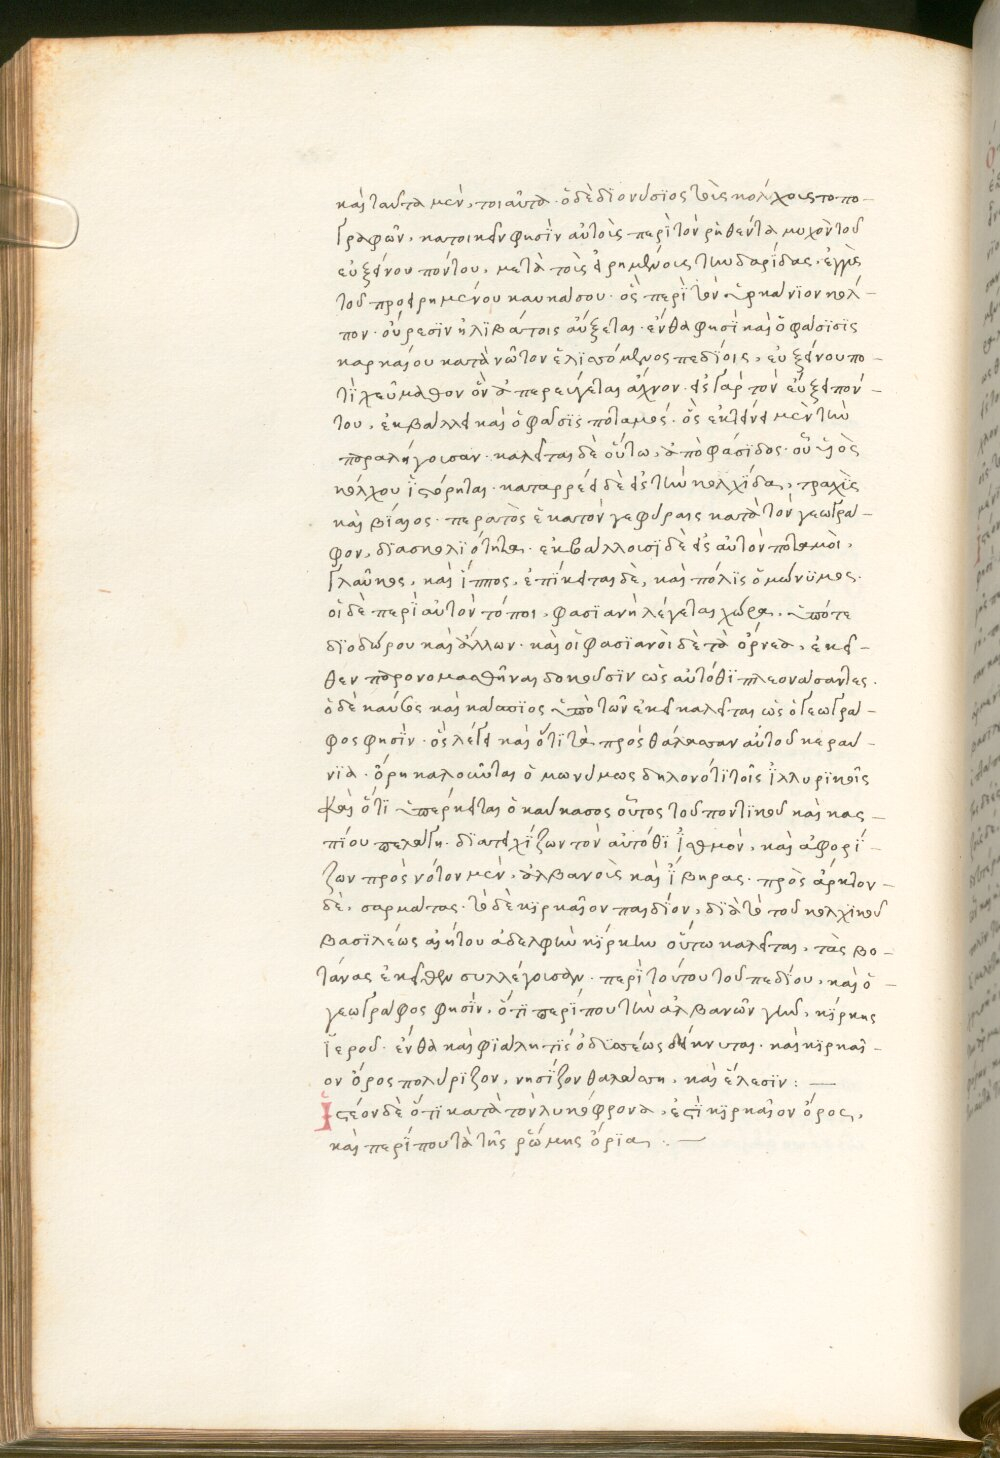 καὶ ταῦτα μὲν, τοιαῦτα· ὁ δὲ διονύσϊος τοῖς κόλχοις τοπο-
γραφῶν, κατοικεῖν φησὶν αὐτοὺς περὶ τὸν ῥηθέντα μυχὸν τοῦ
εὐξείνου πόντου, μετὰ τοὺς εἰρημένους τυνδαρίδας, ἐγγὺς
τοῦ προειρημένου καυκάσου· ὃς περὶ τὸν ὑρκάνϊον κόλ-
πον· οὔρεσϊν ἠλϊβάτοις αὔξεται· ἔνθα φησὶ καὶ ὁ φάσϊς
κιρκαίου κατὰ νῶτον ἑλϊσσόμενος πεδίοιο, εὐξείνου πο-
τὶ χεῦμα θοὸν ἀπερεύγεται ἄχνην· εἰς γὰρ τὸν εὔξεινον πόν-
του, ἐκβάλλει καὶ ὁ φάσϊς ποταμός· ὃς ἐκτείνει μὲν τὴν
παραλήγουσαν· καλεῖται δὲ οὕτω, ἀπὸ φάσϊδος· οὗ υἱὸς
κόλχου ἱστόρηται· καταρρεῖ δὲ εἰς τὴν κολχίδα, τραχὺς
καὶ βίαιος· περατὸς ἑκατὸν γεφύραις κατὰ τὸν γεωγρά-
φον, διὰ σκολϊότητα· ἐκβάλλουσϊ δὲ εἰς αὐτὸν ποταμοὶ,
γλαῦκος, καὶ ἵππος, ἐπίκειται δὲ, καὶ πόλϊς ὁμώνυμος·
οἱ δὲ περὶ αὐτὸν τόποι, φασϊανὴ λέγεται χώρα, ὑπό τε
δϊοδώρου καὶ ἄλλων· καὶ οἱ φασϊανοὶ δὲ τὰ ὄρνεα, ἐκεῖ-
θεν παρονομασθῆναι δοκοῦσϊν ὡς αὐτόθϊ πλεονάσαντες.
ὁ δὲ καύκασος καὶ κάσπϊος ὑπὸ τῶν ἐκεῖ καλεῖται ὡς ὁ γεωγρά-
φος φησὶν· ὃς λέγει καὶ ὅτϊ τὰ πρὸς θάλασσαν αὐτοῦ κεραύ-
νϊα· ὄρη καλοῦνται ὁμωνύμως δηλονότϊ τοῖς ἰλλυρϊκοῖς
καὶ ὅτϊ ὑπέρκειται ὁ καύκασος οὗτος τοῦ ποντϊκοῦ καὶ κασ-
πίου πελάγη· δϊατειχίζων τὸν αὐτόθϊ ἰσθμὸν, καὶ ἀφορί-
ζων πρὸς νότον μὲν, ἀλβανοὺς καὶ ἴβηρας· πρὸς ἄρκτον
δὲ, σαρμάτας· τὸ δὲ κϊρκαῖον παιδίον, δϊὰ τὸ τοῦ κολχϊκοῦ
βασϊλέως αἰήτου ἀδελφὴν κίρκην οὕτω καλεῖται, τὰς βο-
τάνας ἐκεῖθεν συλλέγουσαν· περὶ τούτου τοῦ πεδίου, καὶ ὁ
γεωγράφος φησὶν, ὅτϊ περί που τὴν ἀλβανῶν γῆν, κίρκης
ἱερόν· ἔνθα καὶ φϊάλη τϊς ὀδϋσσέως δείκνυται· καὶ κϊρκαῖ-
ον ὄρος πολύρϊζον, νησίζον θαλάσση, καὶ ἕλεσϊν: —
Ἰστέον δὲ ὅτϊ κατὰ τὸν λυκόφρονα, ἐστὶ κϊρκαῖον ὄρος,
καὶ περί που τὰ τῆς ῥώμης ὅρϊα, : —